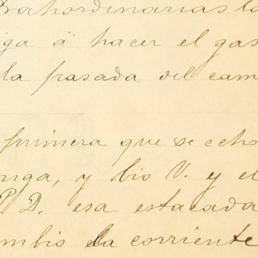 trahordinarias la
iga á hacer el gas
la pasada del cam
primera que se echo
nga, y bio V. y el
P D. esa estacada
mbio la corriente